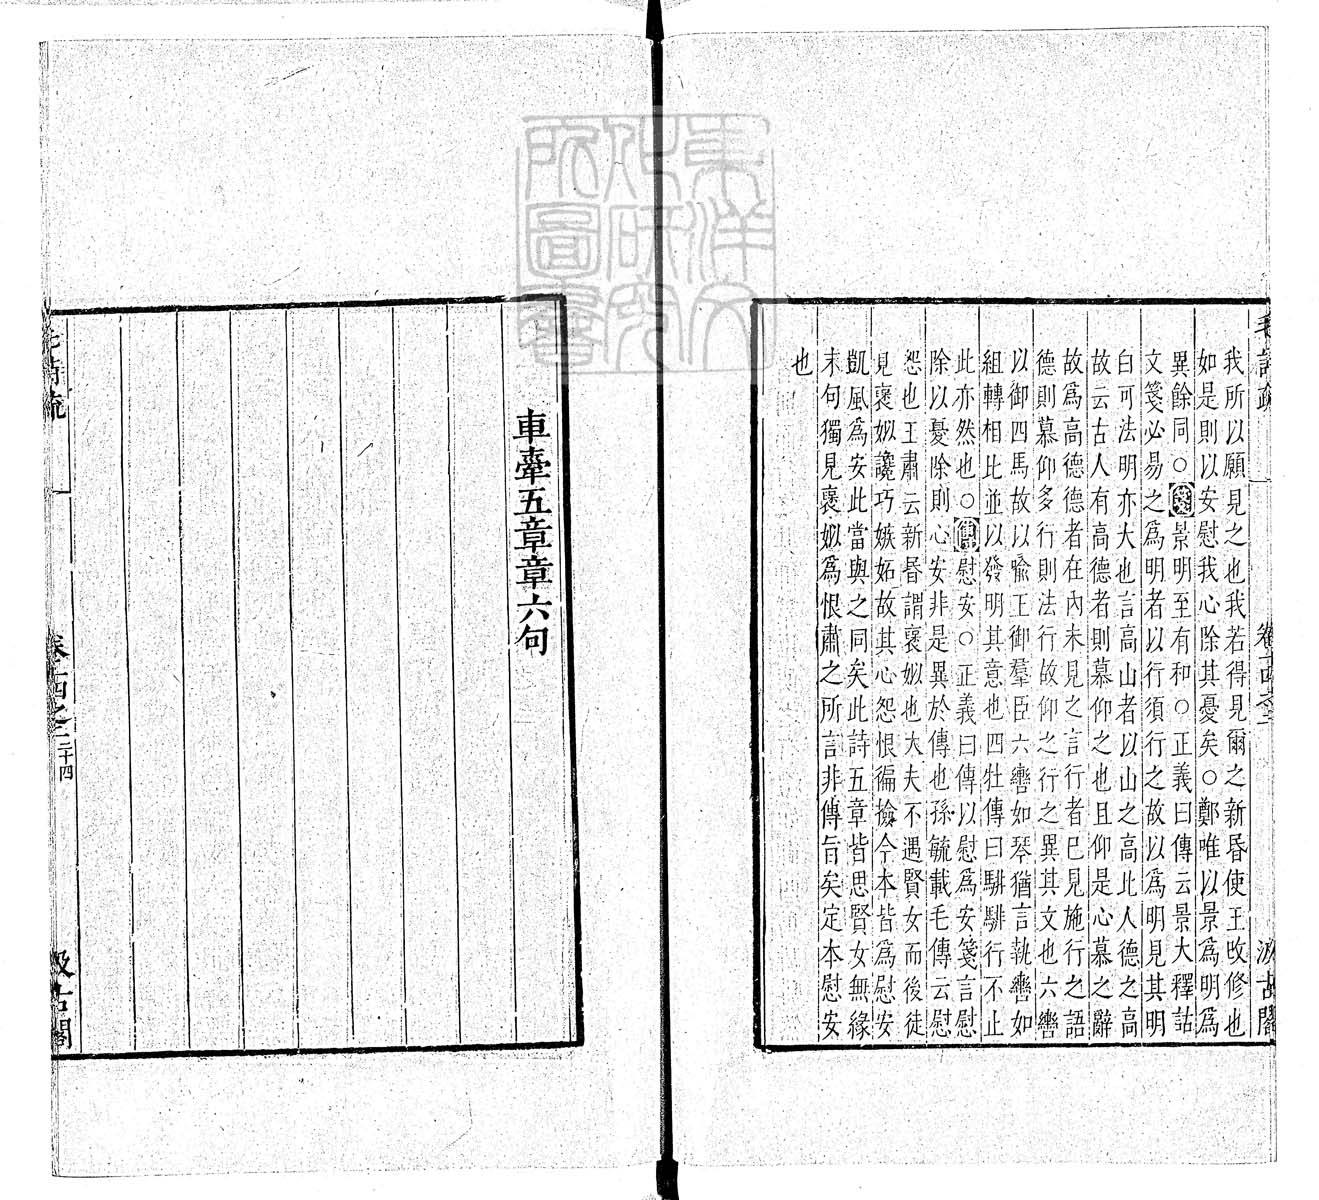 毛詩疏 卷十四之二 汲古閣
我所以願見之也我若得見爾之新昬使王改修也
如是則以安慰我心除其憂矣○鄭唯以景爲明爲
異餘同○箋景明至有和○正義曰傳云景大釋詁
文箋必易之爲明者以行須行之故以爲明見其明
白可法明亦大也言高山者以山之高此人德之高
故云古人有高德者則慕仰之也且仰是心慕之辭
故爲高德德者在內未見之言行者已見施行之語
德則慕仰多行則法行故仰之行之異其文也六轡
以御四馬故以喻王御羣臣六轡如琴猶言執轡如
組轉相比並以發明其意也四牡傳曰騑騑行不止
此亦然也○傳慰安○正義曰傳以慰爲安箋言慰
除以憂除則心安非是異於傳也孫毓載毛傳云慰
怨也王肅云新昬謂褒姒也大夫不遇賢女而後徒
見褒姒讒巧嫉妬故其心怨恨徧撿今本皆爲慰安
凱風爲安此當與之同矣此詩五章皆思賢女無緣
末句獨見褒姒爲恨肅之所言非傳旨矣定本慰安
也
車舝五章章六句
毛詩疏 卷十四之二 二十四 汲古閣